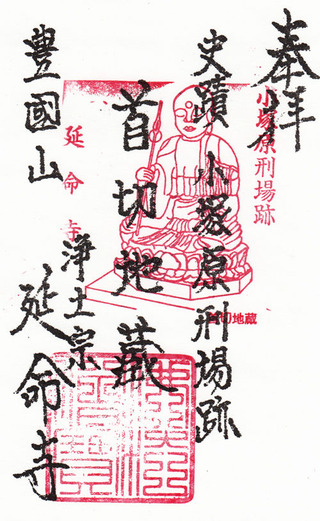 奉拝
史蹟 小塚原刑場跡
首切地蔵
浄土宗
豊國山 延命寺
小塚原刑場跡
延命寺
首切地蔵